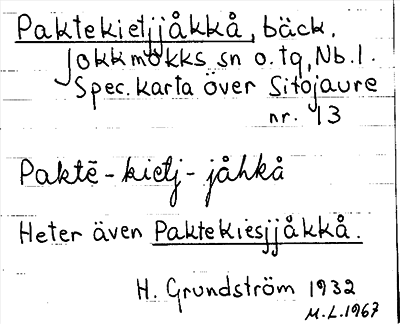 Paktekietjjåkkå, bäck.
Jokkmokks sn o. tg, Nb. l.
Spec. karta över Sitojaure
nr. 13
Paktē - kietj - jåhkå
Heter även Paktekiesjjåkkå.
H. Grundström 1932
M.L. 1967